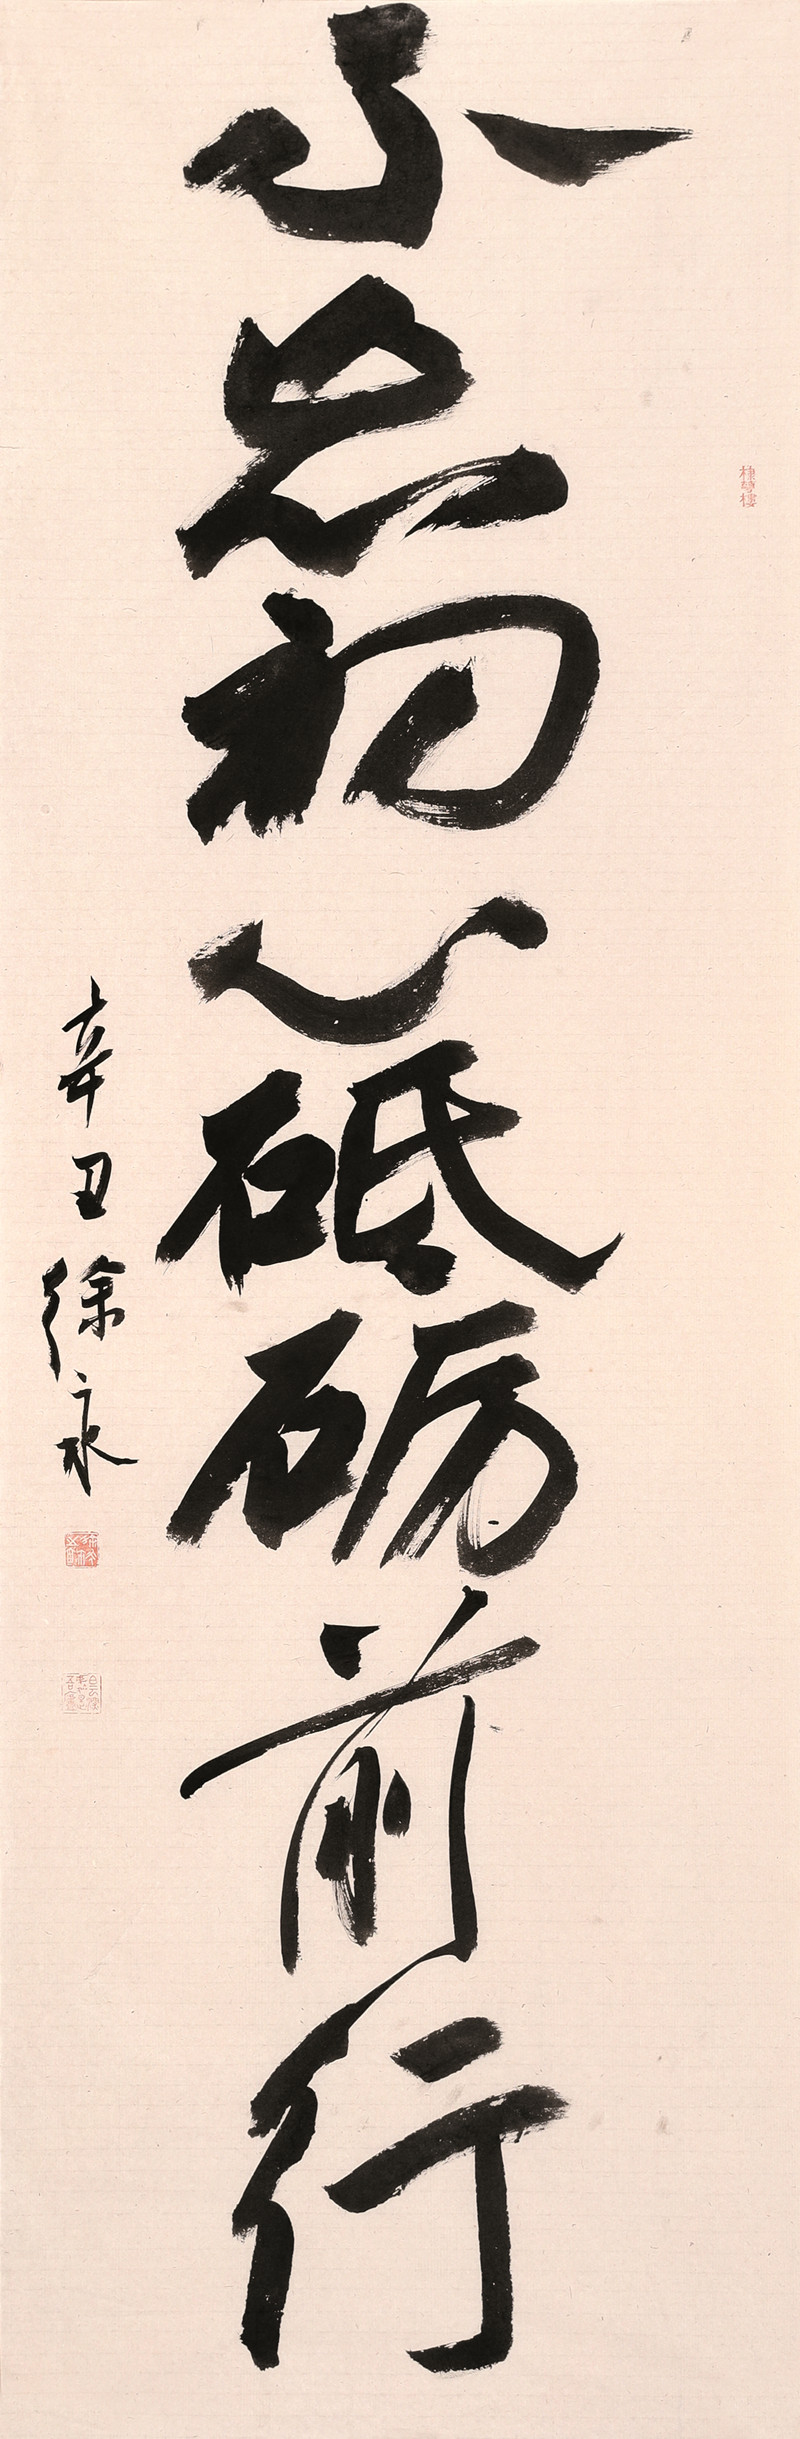 不忘初心砥砺前行
辛丑徐永